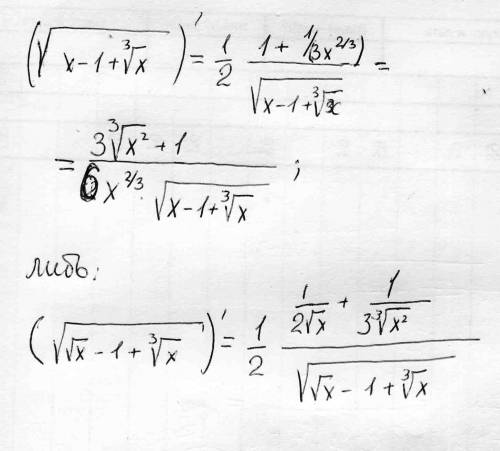 (√(x-1+∛x))' = 1/2 · (1 + 1/(3x^{2/3})) / √(x-1+∛x) =
= (3∛(x²) + 1) / (6x^{2/3} · √(x-1+∛x)) ;
либо:
(√(√x - 1 + ∛x))' = 1/2 · (1/(2√x) + 1/(3∛(x²))) / √(√x - 1 + ∛x)